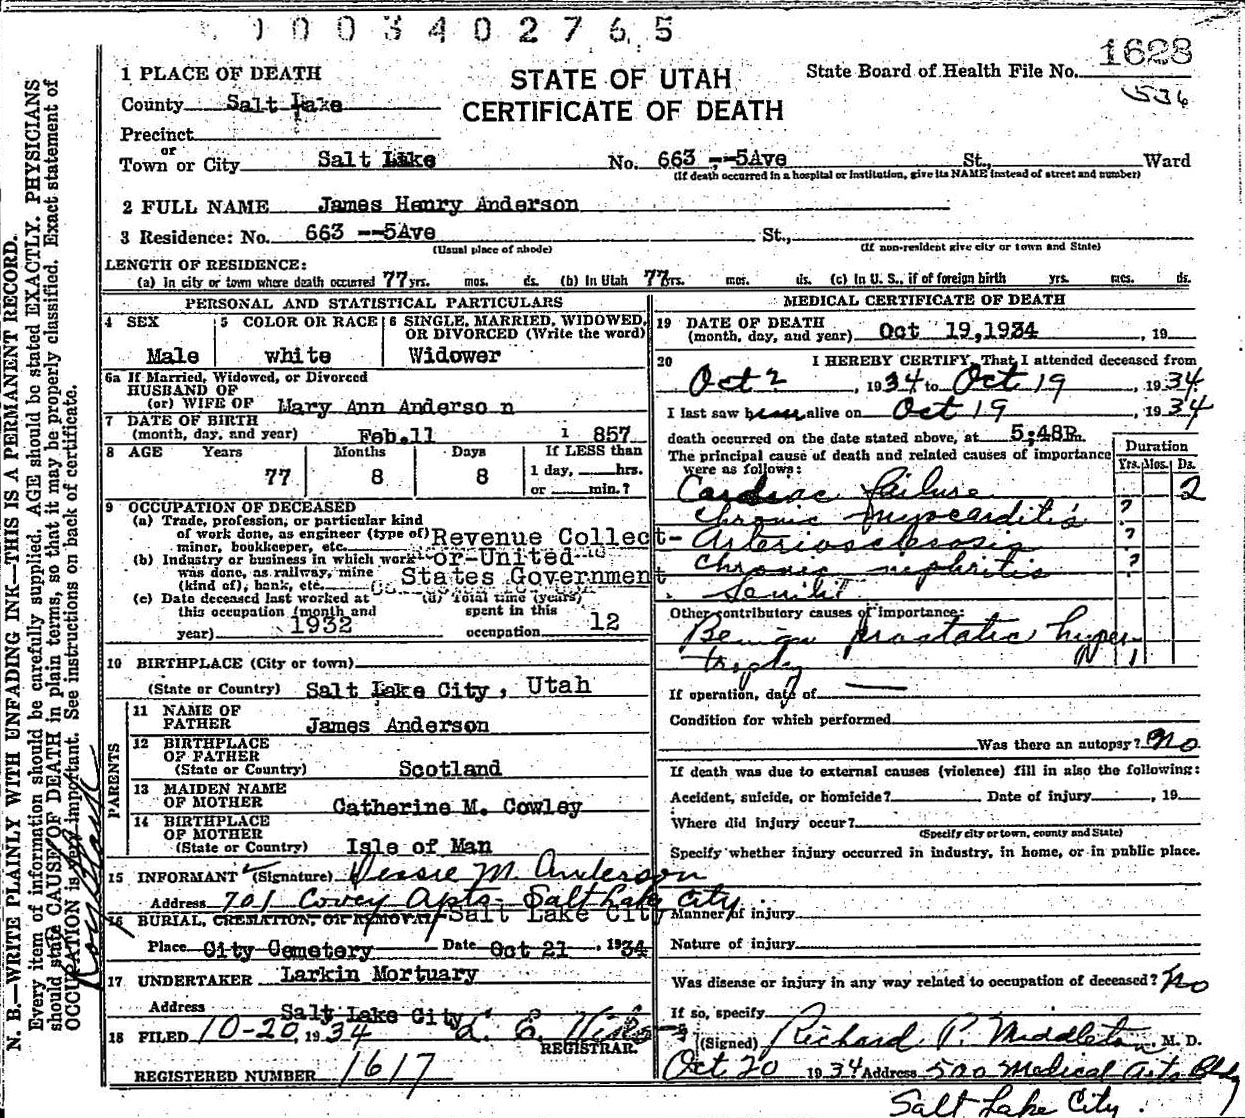 0003402765
1628
536
1 PLACE OF DEATH
STATE OF UTAH
CERTIFICATE OF DEATH
State Board of Health File No.
County Salt Lake
Precinct
or
Town or City Salt Lake No. 663 --5Ave St., Ward
(If death occurred in a hospital or institution, give its NAME instead of street and number)
2 FULL NAME James Henry Anderson
3 Residence: No. 663 --5Ave St.,
(Usual place of abode) (If non-resident give city or town and State)
LENGTH OF RESIDENCE:
(a) In city or town where death occurred 77 yrs. mos. ds. (b) In Utah 77 yrs. mos. ds. (c) In U. S., if of foreign birth yrs. mos. ds.
PERSONAL AND STATISTICAL PARTICULARS
4 SEX 5 COLOR OR RACE 6 SINGLE, MARRIED, WIDOWED, OR DIVORCED (Write the word)
Male white Widower
6a If Married, Widowed, or Divorced
HUSBAND OF
(or) WIFE OF Mary Ann Anderso n
7 DATE OF BIRTH
(month, day, and year) Feb.11 1 857
8 AGE Years Months Days If LESS than
77 8 8 1 day, hrs.
or min.?
9 OCCUPATION OF DECEASED
(a) Trade, profession, or particular kind
of work done, as engineer (type of)
minor, bookkeeper, etc. Revenue Collect-
(b) Industry or business in which work or-United
was done, as railway, mine
(kind of), bank, etc. States Government
(c) Date deceased last worked at (d) Total time (years)
this occupation (month and spent in this
year) 1932 occupation 12
10 BIRTHPLACE (City or town)
(State or Country) Salt Lake City, Utah
PARENTS
11 NAME OF
FATHER James Anderson
12 BIRTHPLACE
OF FATHER
(State or Country) Scotland
13 MAIDEN NAME
OF MOTHER Catherine M. Cowley
14 BIRTHPLACE
OF MOTHER
(State or Country) Isle of Man
15 INFORMANT (Signature) Dessie M Anderson
Address 701 Covey Apts- Salt Lake City
16 BURIAL, CREMATION, OR REMOVAL Salt Lake City
Place City Cemetery Date Oct 21, 1934
17 UNDERTAKER Larkin Mortuary
Address Salt Lake City
18 FILED 10-20, 1934
REGISTRAR.
REGISTERED NUMBER 1617
MEDICAL CERTIFICATE OF DEATH
19 DATE OF DEATH
(month, day, and year) Oct 19,1934, 19
20 I HEREBY CERTIFY, That I attended deceased from
Oct 2, 1934 to Oct 19, 1934
I last saw him alive on Oct 19, 1934
death occurred on the date stated above, at 5:48P.m.
The principal cause of death and related causes of importance
were as follows:
Duration
Yrs. Mos. Ds.
Cardiac failure 2
Chronic myocarditis ?
Arteriosclerosis ?
Chronic nephritis ?
Senilit
Other contributory causes of importance:
Benign prostatic hyper-
trophy
If operation, date of —
Condition for which performed
Was there an autopsy? No
If death was due to external causes (violence) fill in also the following:
Accident, suicide, or homicide? Date of injury, 19
Where did injury occur?
(Specify city or town, county and State)
Specify whether injury occurred in industry, in home, or in public place.
Manner of injury
Nature of injury
Was disease or injury in any way related to occupation of deceased? No
If so, specify
(Signed) Richard P. Middleton, M. D.
Oct 20 1934 Address 500 Medical Arts Bldg
Salt Lake City.
N. B.—WRITE PLAINLY WITH UNFADING INK—THIS IS A PERMANENT RECORD.
Every item of information should be carefully supplied. AGE should be stated EXACTLY. PHYSICIANS
should state CAUSE OF DEATH in plain terms, so that it may be properly classified. Exact statement of
OCCUPATION is very important. See instructions on back of certificate.